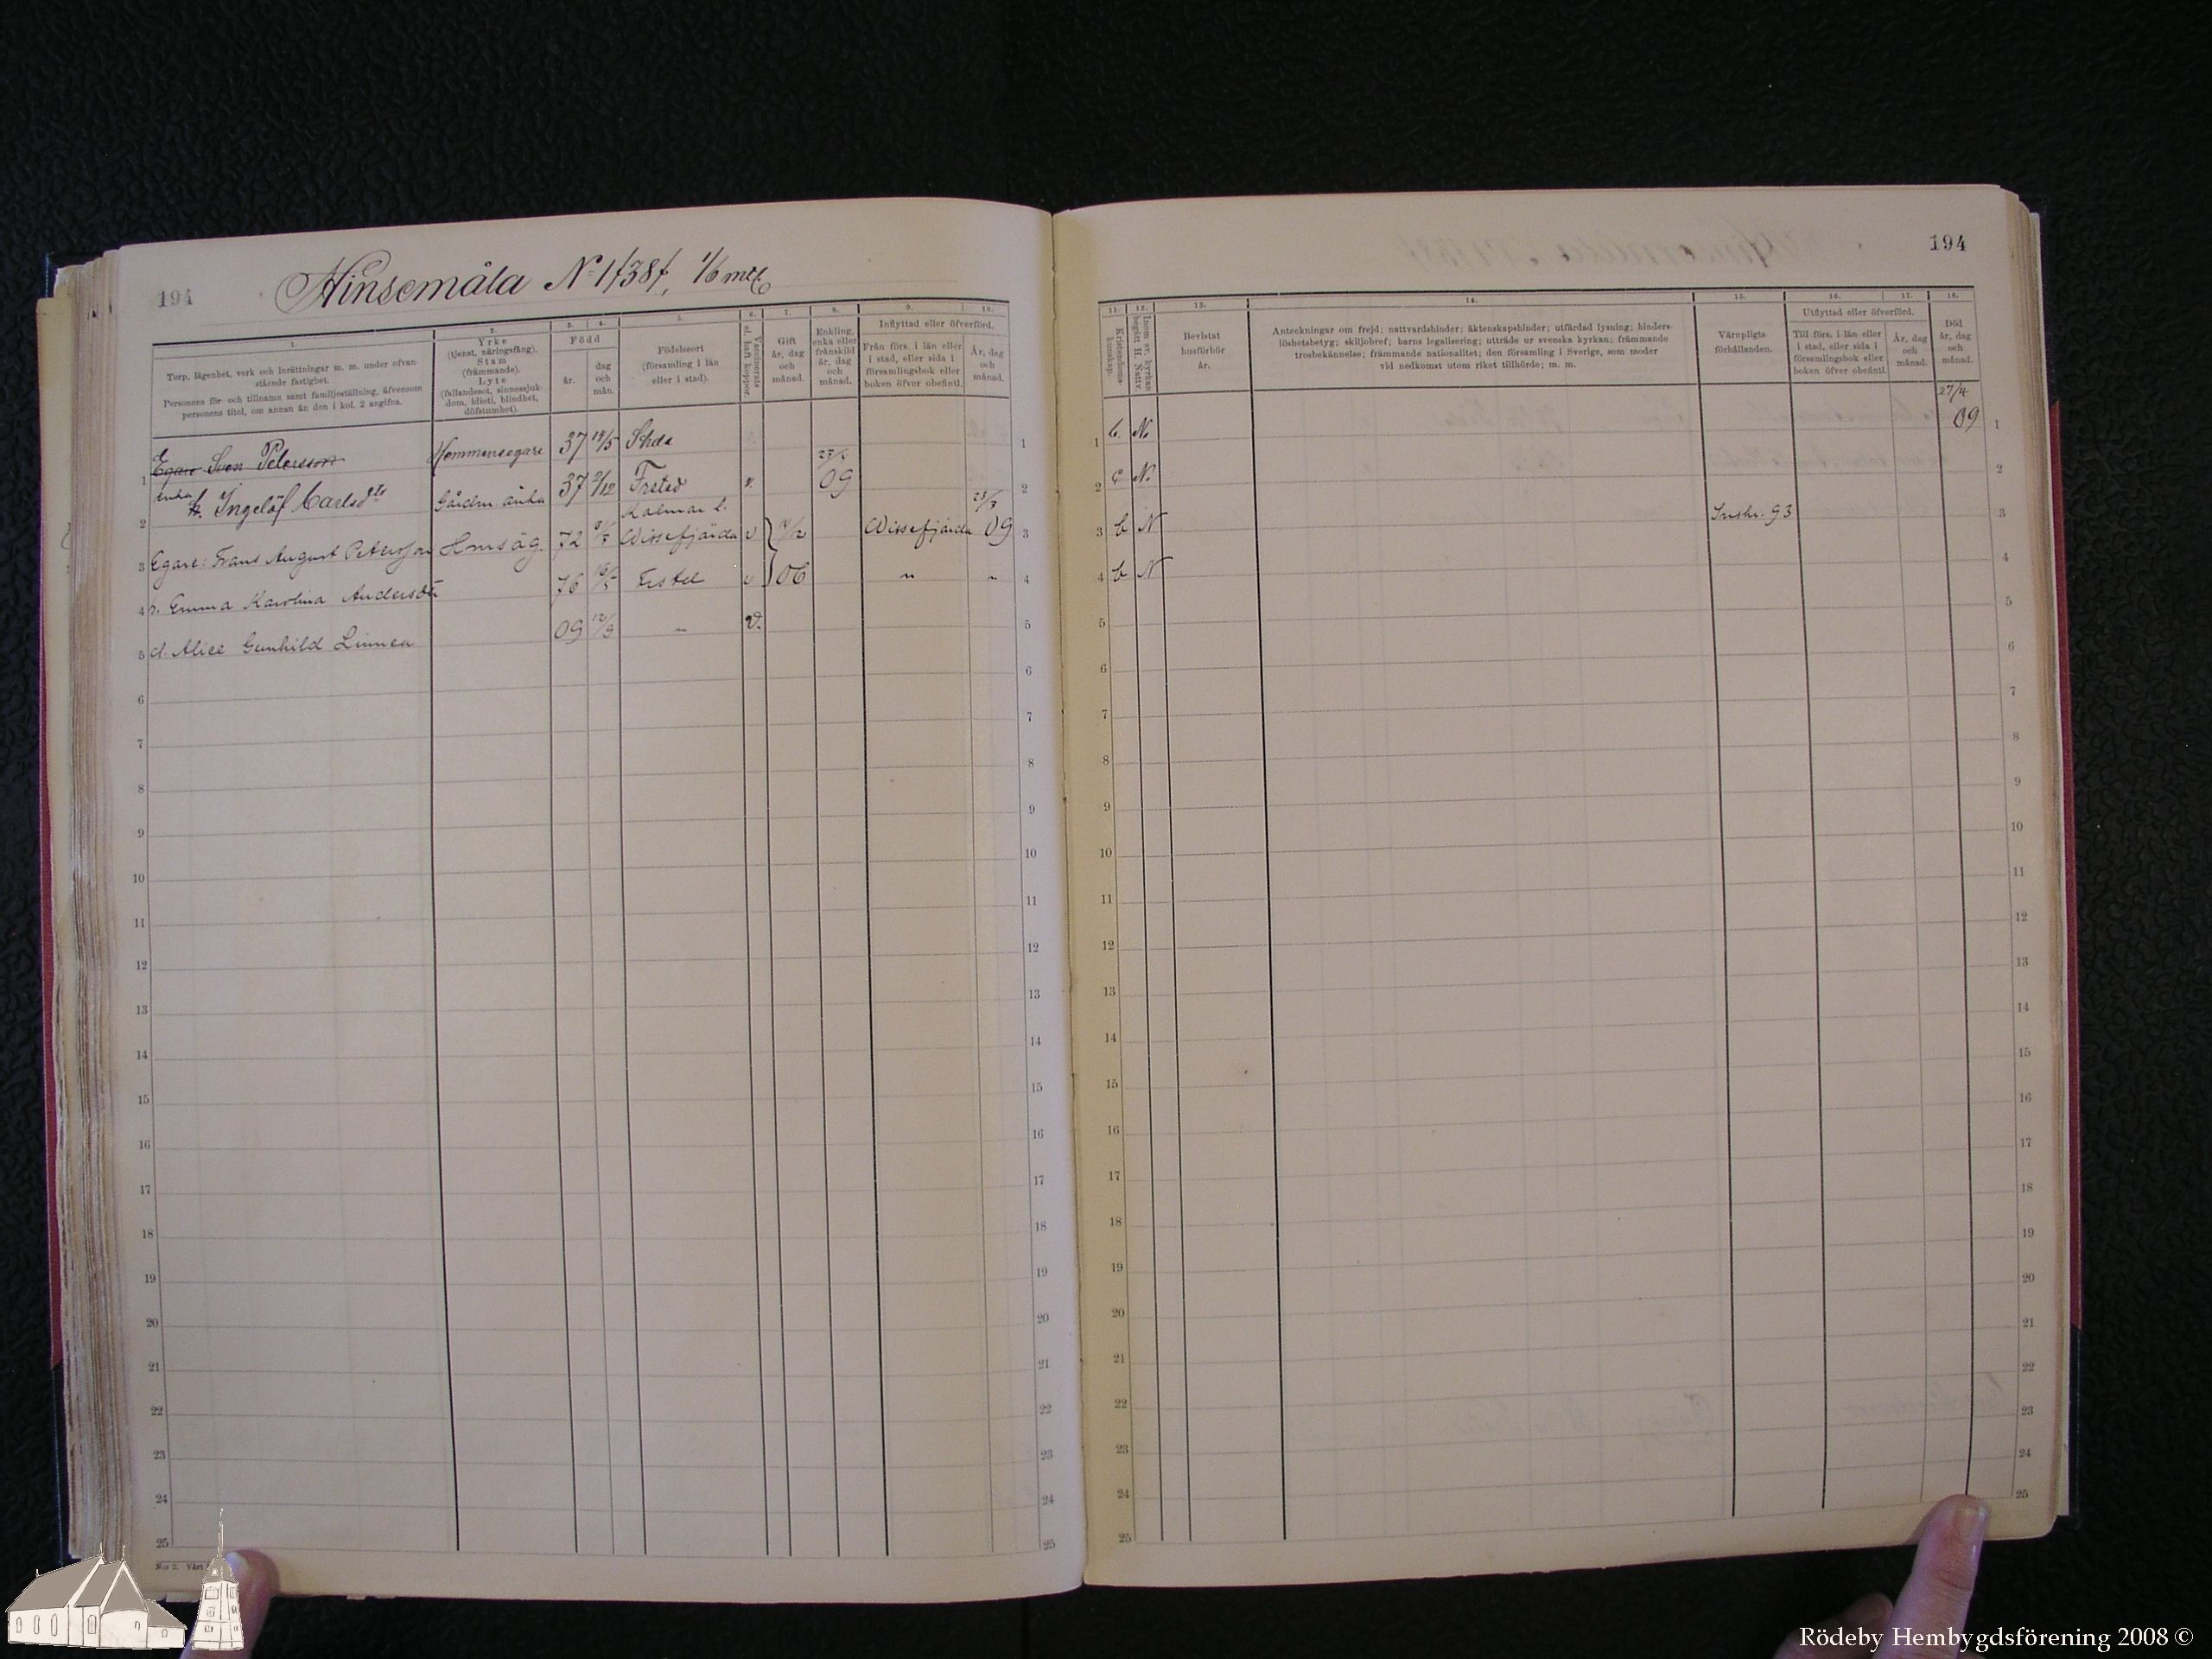 194
Hinsemåla No 1/38/, 1/6 mtl
1.
Torp, lägenhet, verk och inrättningar m. m. under ofvanstående fastighet.
Personens för- och tillnamn samt familjeställning, äfvensom
personens titel, om annan än den i kol. 2 angifna.
2.
Yrke
(tjenst, näringsfång).
Stam
(främmande).
Lyte
(fallandesot, sinnessjukdom, idioti, blindhet, döfstumhet).
3. 4.
Född
år.
dag
och
mån.
5.
Födelseort
(församling i län
eller i stad).
6.
Vaccinerats
el. haft koppor.
7.
Gift
år, dag
och
månad.
8.
Enkling,
enka eller
frånskild
år, dag
och
månad.
9. 10.
Inflyttad eller öfverförd.
Från förs. i län eller
i stad, eller sida i
församlingsbok eller
boken öfver obefintl.
År, dag
och
månad.
1 Egare Sven Petersson Hemmansegare 37 Schda 1
2 enka h. Ingelöf Carlsdtr Gårdm. änka 37 9/12 Frsted v. 09 2
3 Egare: Frans August Petersson Hmsäg. 72 Kalmar l. Wissefjärda v 06 Wissefjärda 09 3
4 h. Emma Karolina Andersdtr 76 Frsted v " " 4
5 d. Alice Gunhild Linnea 09 12/9 " v. 5
6 6
7 7
8 8
9 9
10 10
11 11
12 12
13 13
14 14
15 15
16 16
17 17
18 18
19 19
20 20
21 21
22 22
23 23
24 24
25 25
194
11.
Kristendomskunskap.
12.
13.
Bevistat
husförhör
år.
14.
Anteckningar om frejd; nattvardshinder; äktenskapshinder; utfärdad lysning; hinderslöshetsbetyg; skiljobref; barns legalisering; utträde ur svenska kyrkan; främmande
trosbekännelse; främmande nationalitet; den församling i Sverige, som moder
vid nedkomst utom riket tillhörde; m. m.
15.
Värnpligts
förhållanden.
16. 17.
Utflyttad eller öfverförd.
Till förs. i län eller
i stad, eller sida i
församlingsbok eller
boken öfver obefintl.
År, dag
och
månad.
18.
Död
år, dag
och
månad.
1 b. N. 27/4 09 1
2 c N. 2
3 b N Inskr. 93 3
4 b N 4
5 5
6 6
7 7
8 8
9 9
10 10
11 11
12 12
13 13
14 14
15 15
16 16
17 17
18 18
19 19
20 20
21 21
22 22
23 23
24 24
25 25
Rödeby Hembygdsförening 2008 ©